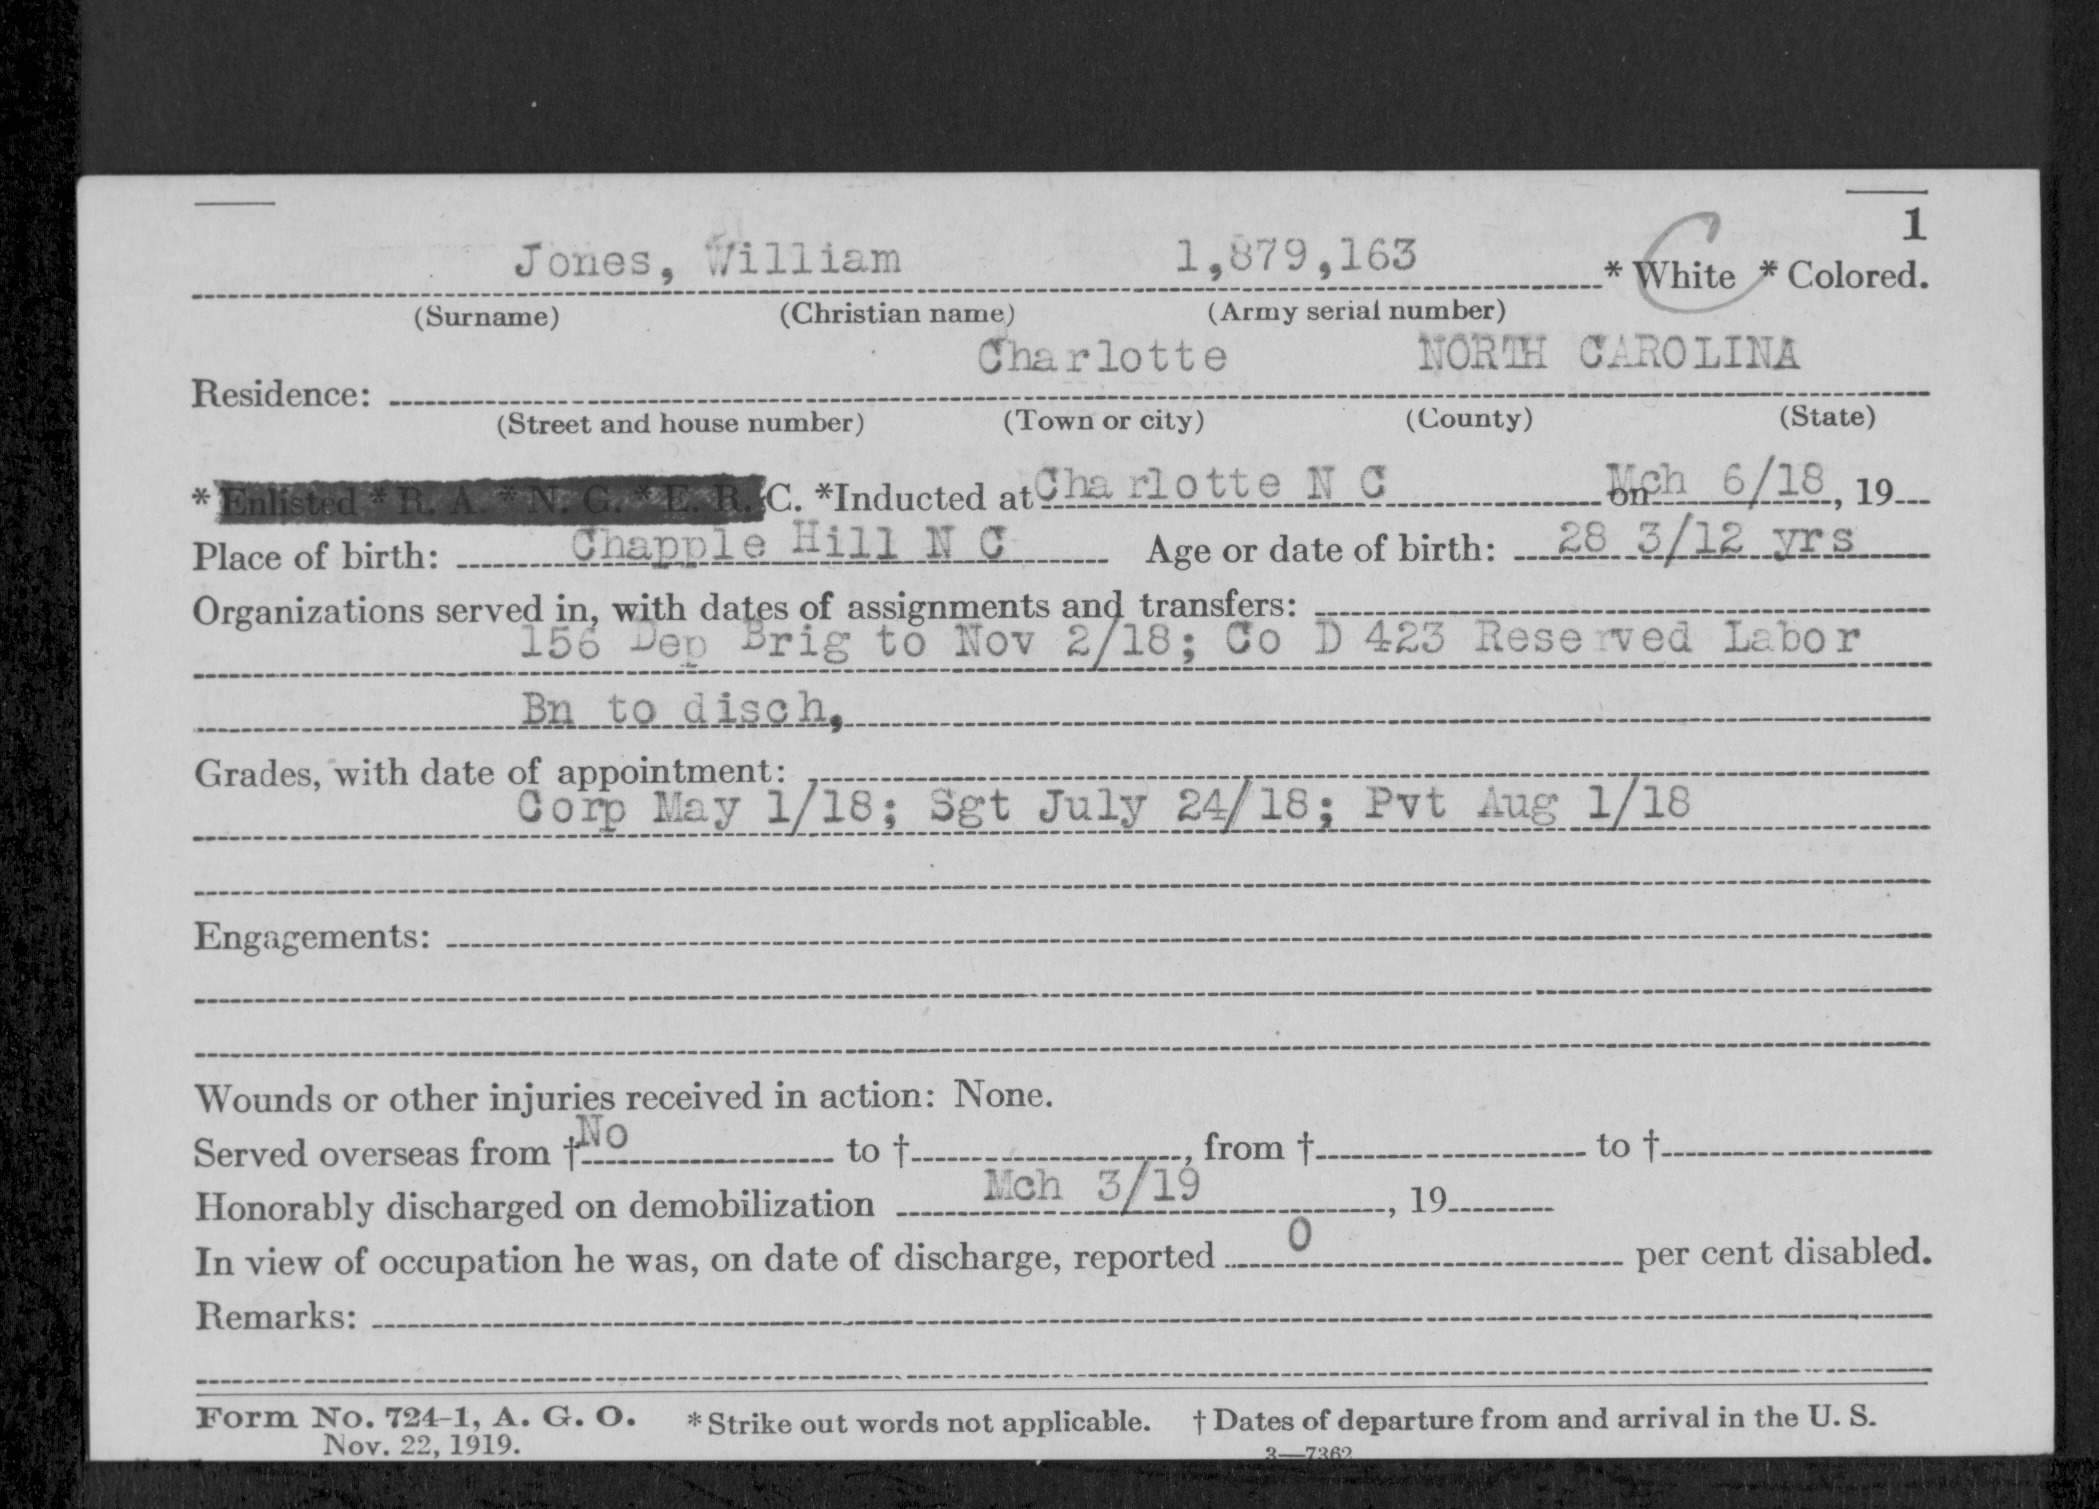 1
Jones, William 1,879,163 * White * Colored.
C
(Surname) (Christian name) (Army serial number)
Charlotte NORTH CAROLINA
Residence:
(Street and house number) (Town or city) (County) (State)
* Enlisted * R. A. * N. G. * E. R. C. *Inducted at Charlotte N C on Mch 6/18, 19
Place of birth: Chapple Hill N C Age or date of birth: 28 3/12 yrs
Organizations served in, with dates of assignments and transfers:
156 Dep Brig to Nov 2/18; Co D 423 Reserved Labor
Bn to disch,
Grades, with date of appointment:
Corp May 1/18; Sgt July 24/18; Pvt Aug 1/18
Engagements:
Wounds or other injuries received in action: None.
Served overseas from † No to †, from † to †
Honorably discharged on demobilization Mch 3/19, 19
In view of occupation he was, on date of discharge, reported 0 per cent disabled.
Remarks:
Form No. 724-1, A. G. O. * Strike out words not applicable. † Dates of departure from and arrival in the U. S.
Nov. 22, 1919. 3—7362